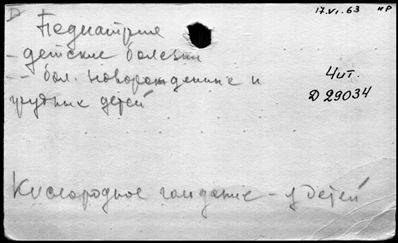 D Педиатрия
17.VI.63 нр
- детские болезни
-- бол. новорожденные и
грудных детей
Чит.
D 29034
Кислородное голодание - у детей